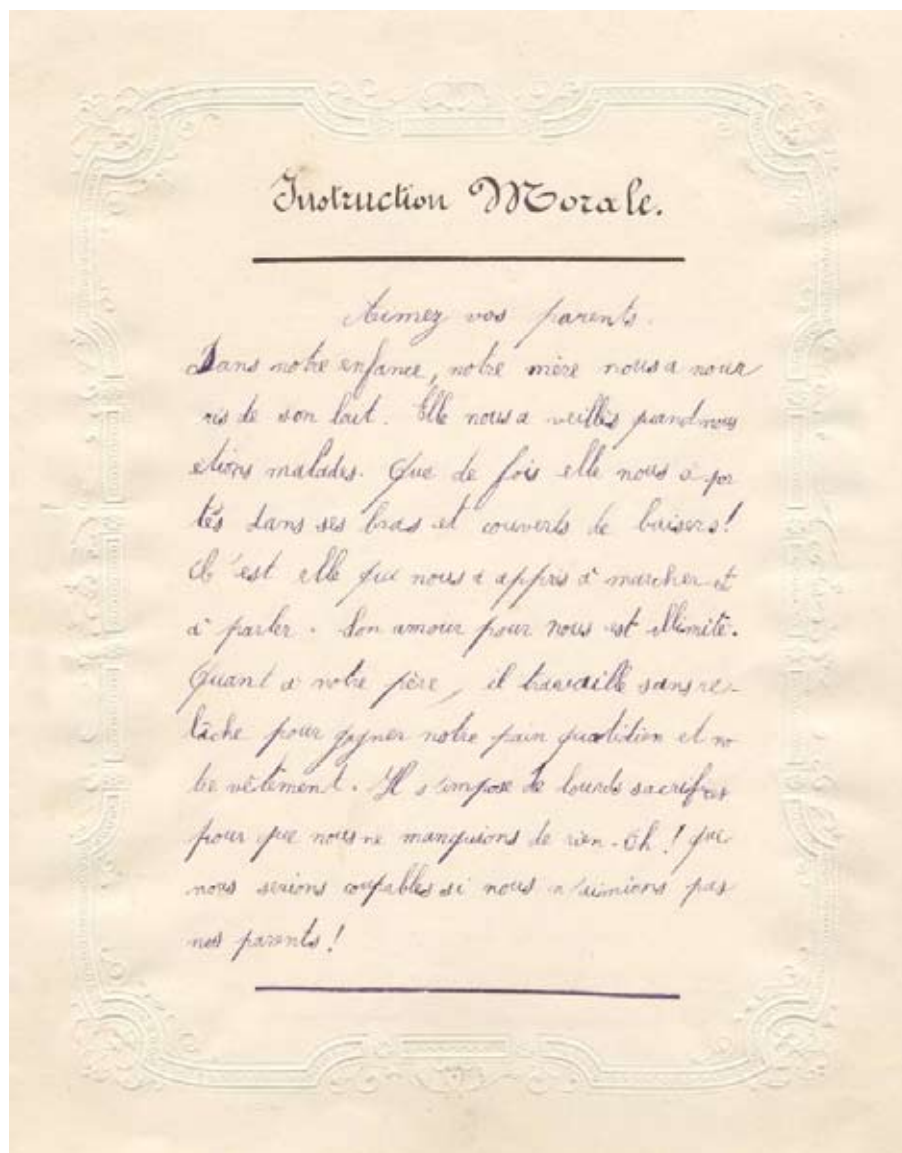 Instruction Morale.
Aimez vos parents.
Dans notre enfance, notre mère nous a nour
ris de son lait. Elle nous a veillés quand nous
etions malades. Que de fois elle nous a por
tés dans ses bras et couverts de baisers!
C'est elle qui nous a appris à marcher et
à parler. Son amour pour nous est illimité.
Quant à notre père, il travaille sans re-
lâche pour gagner notre pain quotidien et no
tre vêtement. Il s'impose de lourds sacrifices
pour que nous ne manquions de rien. Oh! que
nous serions coupables si nous n'aimions pas
nos parents!